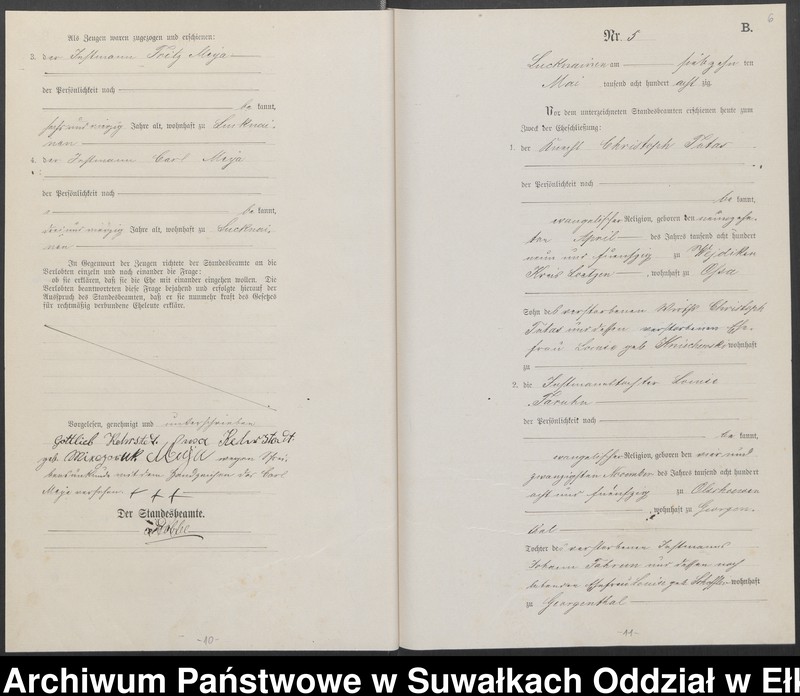 Als Zeugen waren zugezogen und erschienen:
3. der Instmann Fritz Meya
der Persönlichkeit nach
be kannt,
sechs und vierzig Jahre alt, wohnhaft zu Lucknai-
nen
4. der Instmann Carl Meya
der Persönlichkeit nach
be kannt,
drei und vierzig Jahre alt, wohnhaft zu Lucknai-
nen
In Gegenwart der Zeugen richtete der Standesbeamte an die
Verlobten einzeln und nach einander die Frage:
ob sie erklären, daß sie die Ehe mit einander eingehen wollen. Die
Verlobten beantworteten diese Frage bejahend und erfolgte hierauf der
Ausspruch des Standesbeamten, daß er sie nunmehr kraft des Gesetzes
für rechtmäßig verbundene Eheleute erkläre.
Vorgelesen, genehmigt und unterschrieben
Gottlieb Kehrstdt.
geb. Meya wegen Schrei-
bensunkunde mit dem Handzeichen des Carl
Meya versehen + + +
Der Standesbeamte.
-10-
6
B.
Nr. 5
Lucknainen am siebzehn ten
Mai tausend acht hundert acht zig.
Vor dem unterzeichneten Standesbeamten erschienen heute zum
Zweck der Eheschließung:
1. der Knecht Christoph Tatas
der Persönlichkeit nach
be kannt,
evangelischer Religion, geboren den neunzehn-
ten April des Jahres tausend acht hundert
neun und fünfzig zu
Kreis Loetzen, wohnhaft zu Ossa
Sohn des verstorbenen Wirths Christoph
Tatas und dessen verstorbenen Ehe-
frau Louise geb. wohnhaft
zu
2. die Instmannstochter Louise
der Persönlichkeit nach
be kannt,
evangelischer Religion, geboren den vier und
zwanzigsten November des Jahres tausend acht hundert
acht und fünfzig zu
, wohnhaft zu Georgen-
thal
Tochter des verstorbenen Instmanns
Johann und dessen noch
lebenden Ehefrau Louise geb. wohnhaft
zu Georgenthal
-11-
Archiwum Państwowe w Suwałkach Oddział w Eł